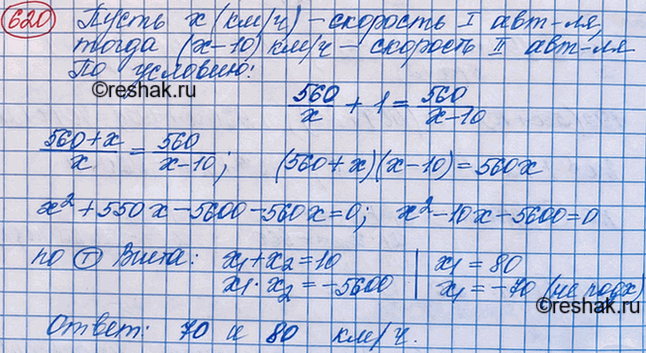 620 Пусть x (км/ч) – скорость I авт-ля,
тогда (x-10) км/ч – скорость II авт-ля
По условию:
©reshak.ru
560/x + 1 = 560/(x-10)
(560+x)/x = 560/(x-10); (560+x)(x-10) = 560x
x² + 550x - 5600 - 560x = 0; x² - 10x - 5600 = 0
по Т Виета: x₁ + x₂ = 10 | x₁ = 80
x₁ · x₂ = -5600 | x₁ = -70 (не подх)
©reshak.ru
Ответ: 70 и 80 км/ч.